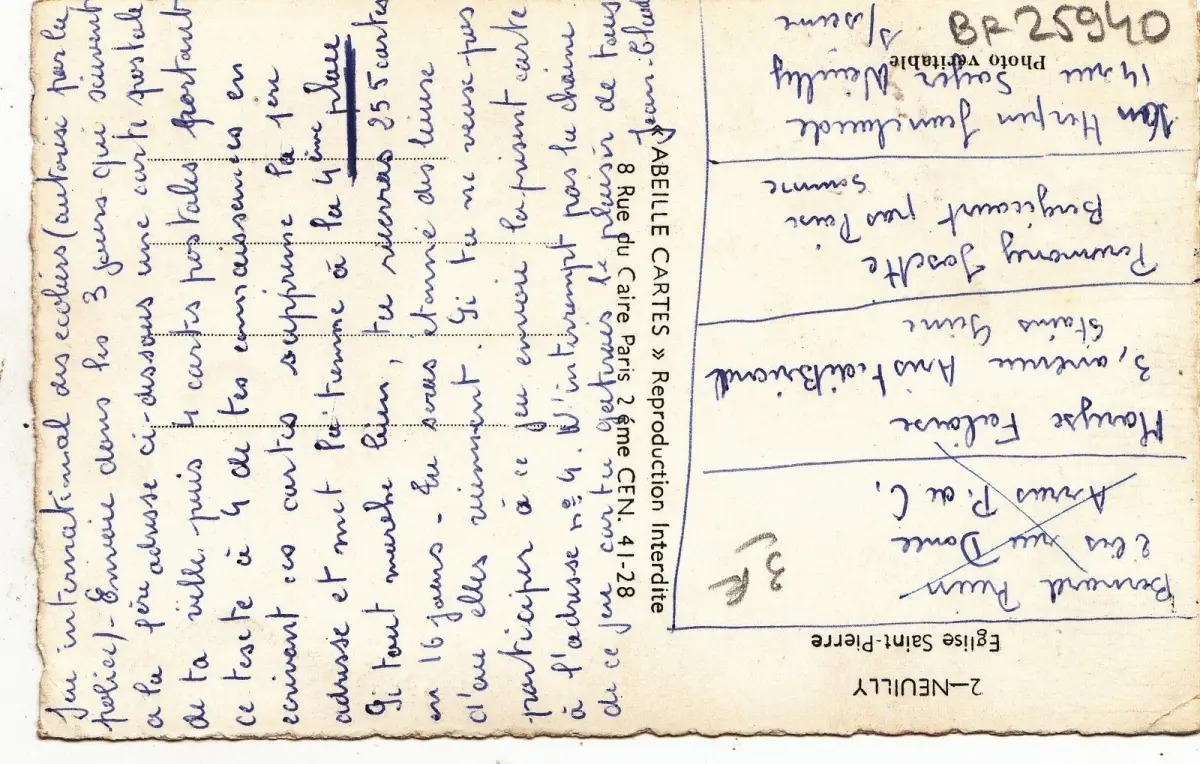 2—NEUILLY
Eglise Saint-Pierre
Jeu international des écoliers (autorisé par la
police) - Envoie dans les 3 jours qui suivent
a la père adresse ci-dessous une carte postale
de ta ville, puis 4 cartes postales portant
ce texte à 4 de tes connaissances en
ecrivant ces cartes supprime la 1er
adresse et met la tienne à la 4ème place
Si tout marche bien, tu recevras 255 cartes
en 16 jours - Tu seras etonné des lieuse
d'ou elles viennent. Si tu ne veux pas
participer à ce jeu envoie la présent carte
à l'adresse n° 4. N'interrompt pas la chaine
de ce jeu car tu gacherais le plaisir de tous
Jean-Claude
« ABEILLE CARTES » Reproduction Interdite
8 Rue du Caire Paris 2 éme CEN. 41-28
Bernard
2 bis rue Doncre
Arras P. de C.
Maryse Falaise
3, avenue Aristide Briand
Stains Seine
Josette
par
Somme
Van Herpin Jean claude
14 rue Soyer Neuilly
s/seine
Photo véritable
BR 25940
3F